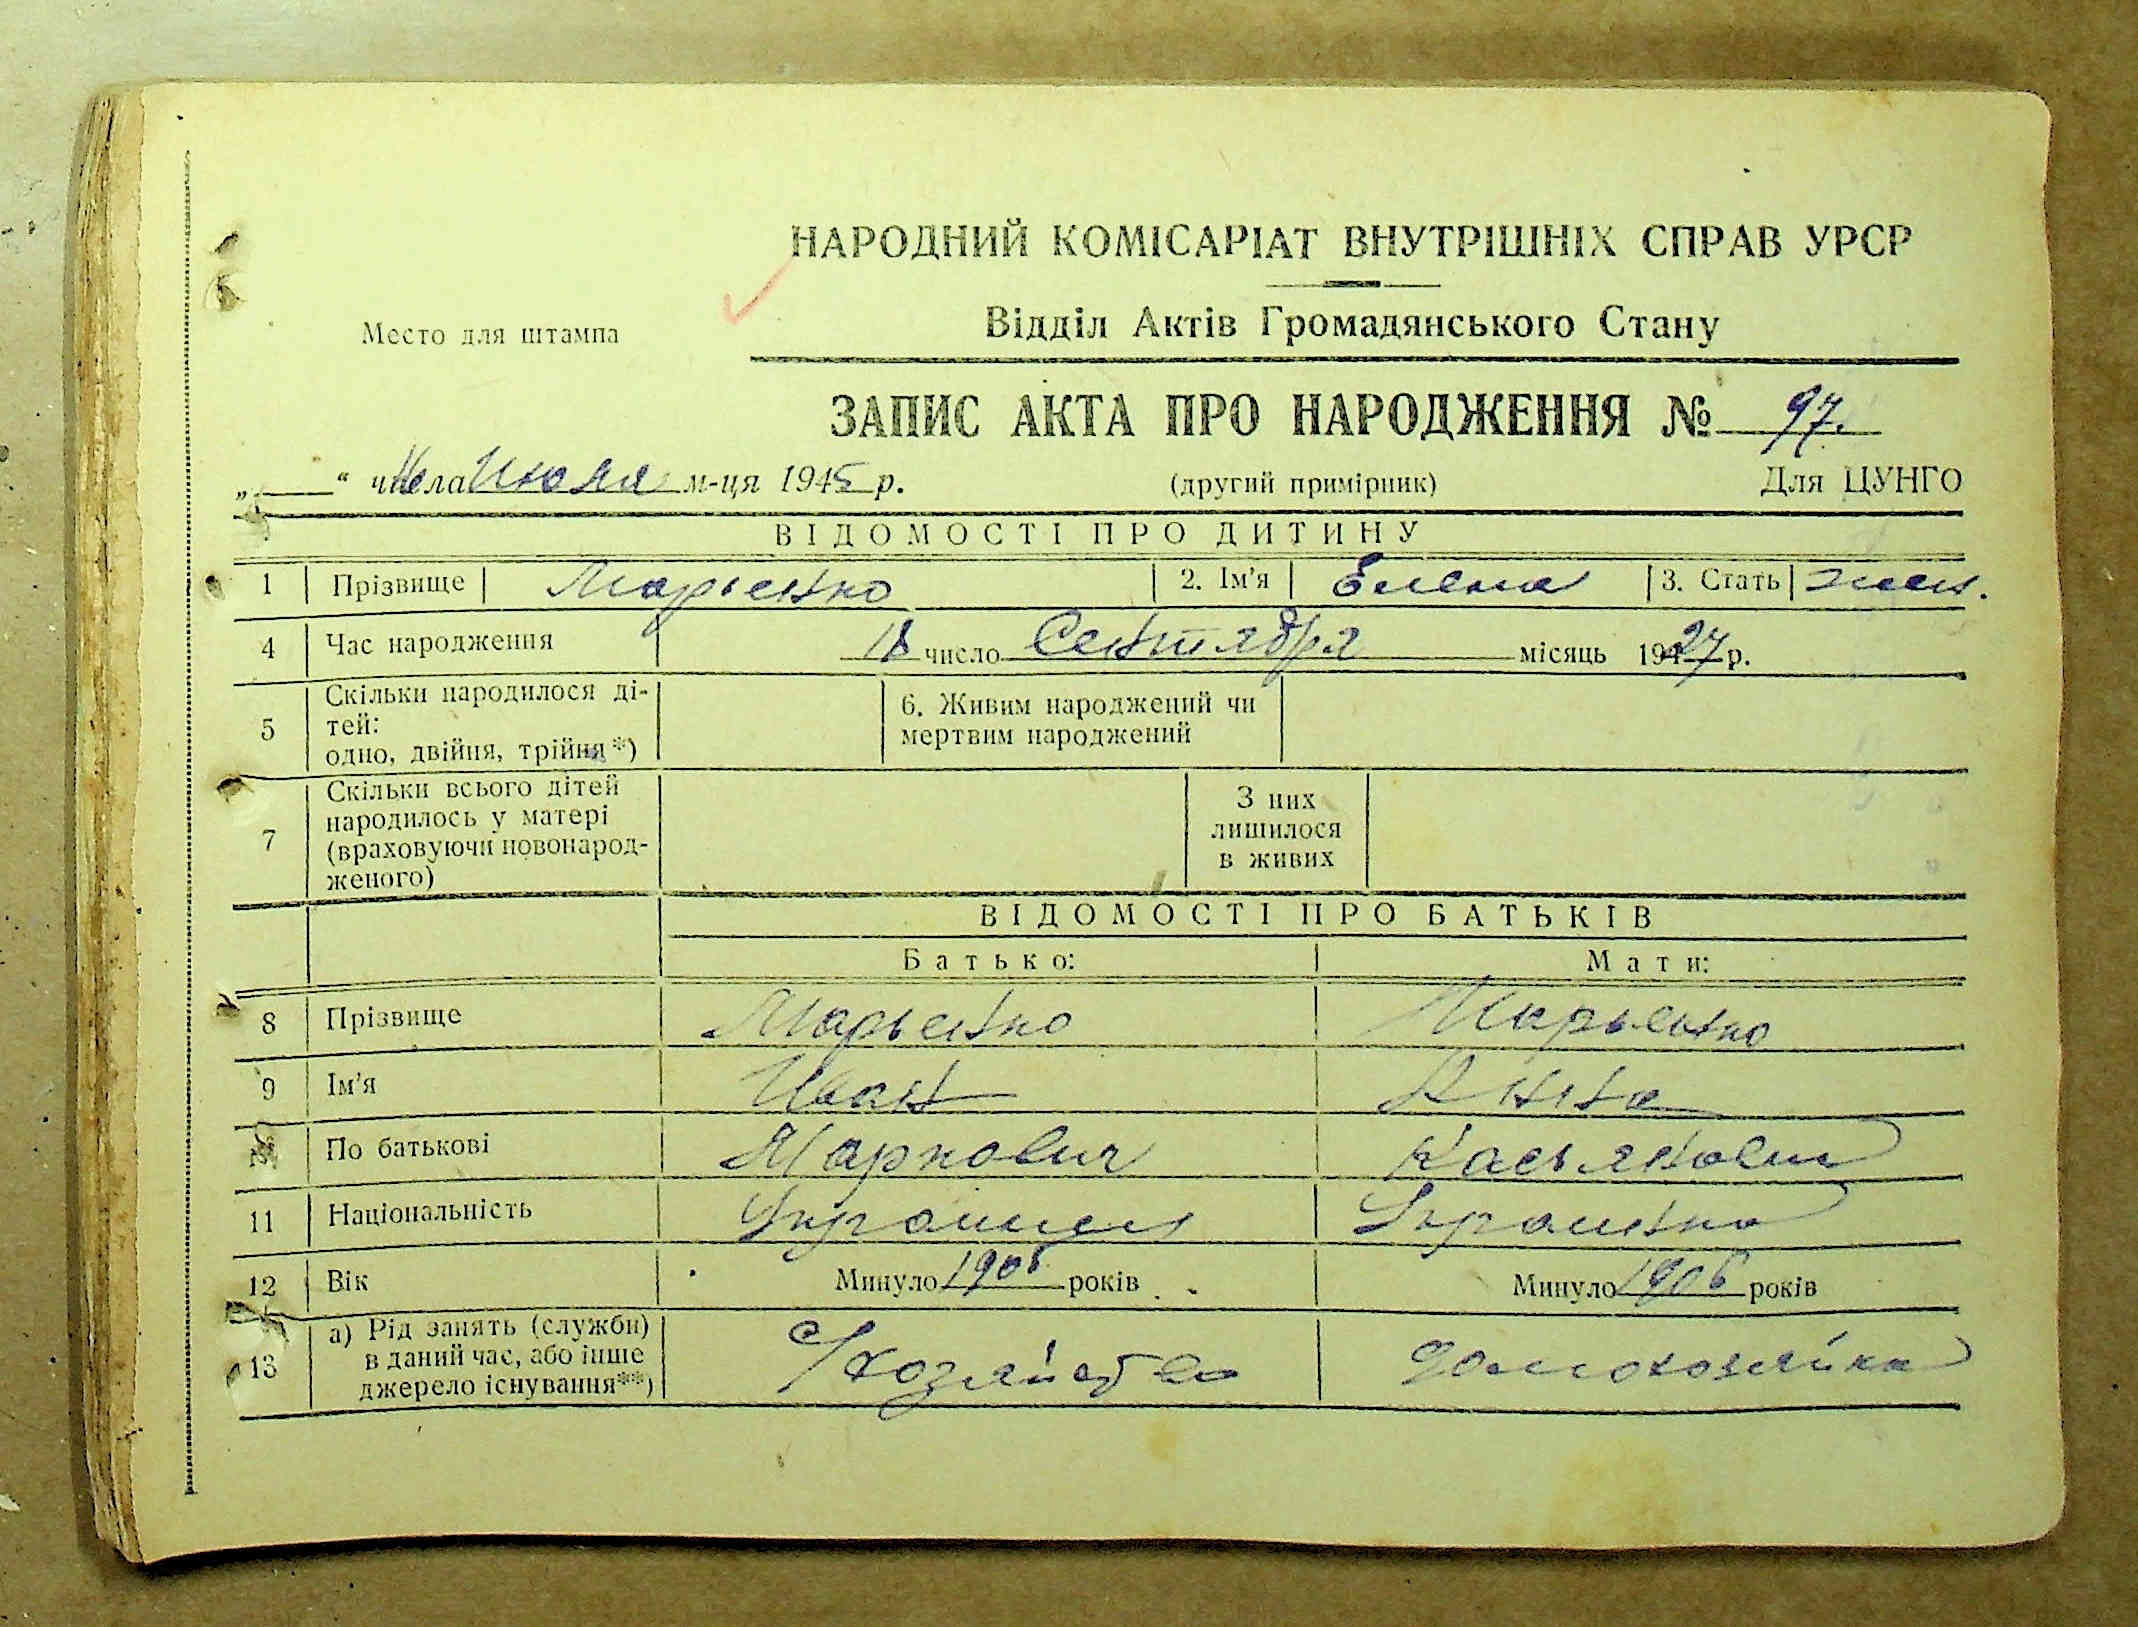 НАРОДНИЙ КОМІСАРІАТ ВНУТРІШНІХ СПРАВ УРСР
Место для штампа
Відділ Актів Громадянського Стану
ЗАПИС АКТА ПРО НАРОДЖЕННЯ № 97.
„ “ числа Июля м-ця 1945 р. (другий примірник) Для ЦУНГО
ВІДОМОСТІ ПРО ДИТИНУ
1 Прізвище Марьенко 2. Ім’я Елена 3. Стать жен.
4 Час народження 18 число Сентября місяць 1927 р.
5 Скільки народилося ді-
тей:
одно, двійня, трійня*)
6. Живим народжений чи
мертвим народжений
7 Скільки всього дітей
народилось у матері
(враховуючи новонарод-
женого)
З них
лишилося
в живих
ВІДОМОСТІ ПРО БАТЬКІВ
Батько: Мати:
8 Прізвище Марьенко Марьенко
9 Ім’я Иван Анна
По батькові Маркович Касьяновна
11 Національність Украинец Украинка
12 Вік Минуло 1906 років Минуло 1906 років
13 а) Рід занять (служби)
в даний час, або інше
джерело існування**)
С/хозяйство домохозяйка